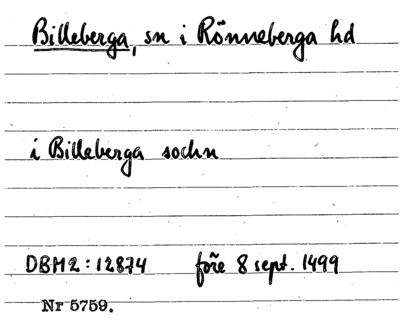 Billeberga, sn i Rönneberga hd
i Billeberga sochn
DBM2:12874 före 8 sept. 1499
Nr 5759.